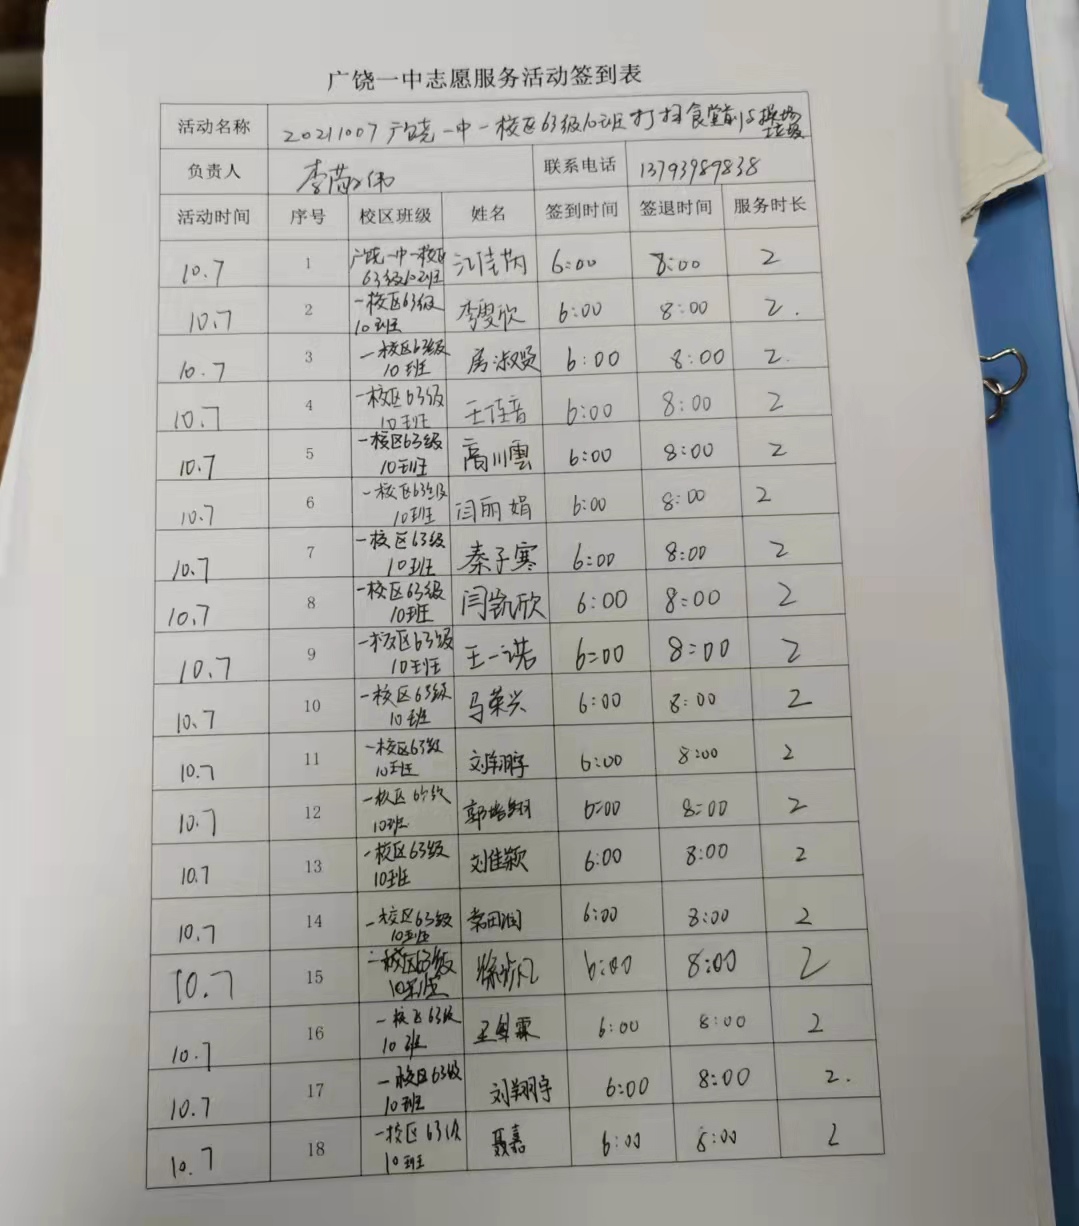 广饶一中志愿服务活动签到表
活动名称 20211007广饶一中一校区63级10班打扫食堂前与操场垃圾
负责人 李 伟 联系电话 13793989838
活动时间 序号 校区班级 姓名 签到时间 签退时间 服务时长
10.7 1 广饶一中一校区 江佳芮 6:00 8:00 2
63级10班
10.7 2 一校区63级 李雯欣 6:00 8:00 2.
10班
10.7 3 一校区63级 房淑贤 6:00 8:00 2.
10班
10.7 4 一校区63级 王佳音 6:00 8:00 2
10班
10.7 5 一校区63级 高川雲 6:00 8:00 2
10班
10.7 6 一校区63级 闫丽娟 6:00 8:00 2
10班
10.7 7 一校区63级 秦子寒 6:00 8:00 2
10班
10.7 8 一校区63级 闫凯欣 6:00 8:00 2
10班
10.7 9 一校区63级 王一诺 6:00 8:00 2
10班
10.7 10 一校区63级 马荣兴 6:00 8:00 2
10班
10.7 11 一校区63级 刘翔宇 6:00 8:00 2
10班
10.7 12 一校区63级 郭 翔 6:00 8:00 2
10班
10.7 13 一校区63级 刘佳颖 6:00 8:00 2
10班
10.7 14 一校区63级 荣田润 6:00 8:00 2
10班
10.7 15 一校区63级 凡 6:00 8:00 2
10班
10.7 16 一校区63级 霖 6:00 8:00 2
10班
10.7 17 一校区63级 刘翔宇 6:00 8:00 2.
10班
10.7 18 一校区63级 聂嘉 6:00 8:00 2
10班